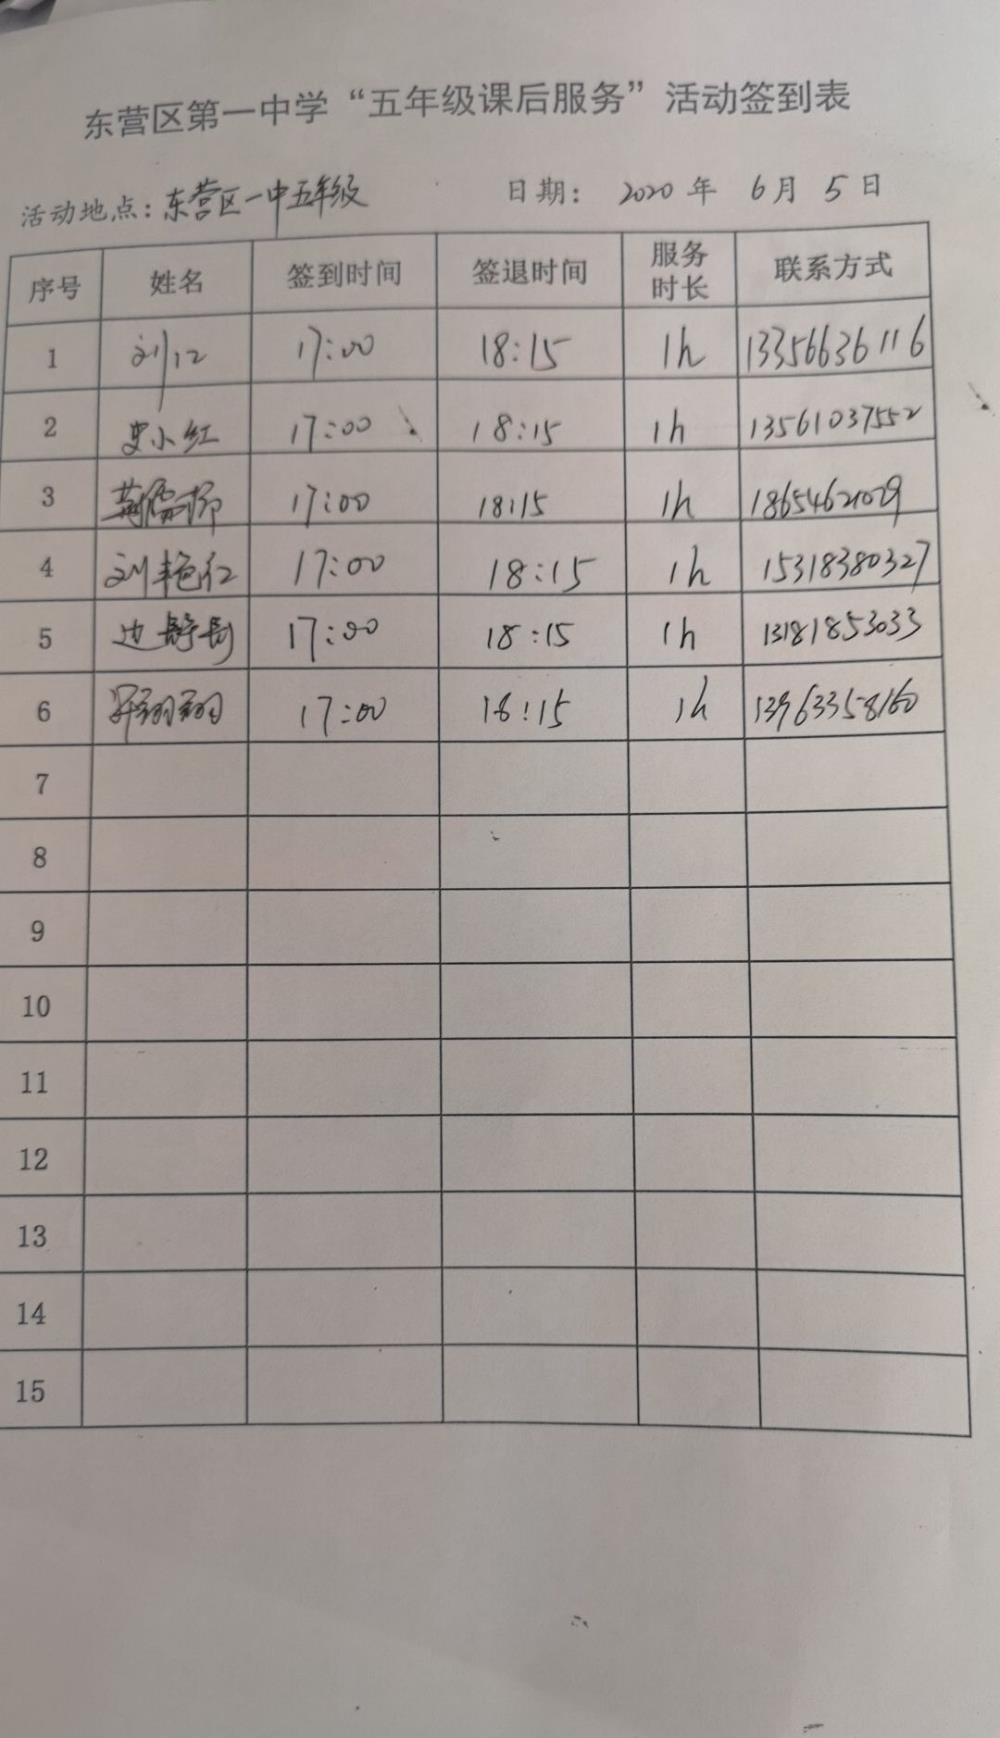 东营区第一中学“五年级课后服务”活动签到表
活动地点：东营区一中五年级 日期： 2020 年 6 月 5 日
序号 姓名 签到时间 签退时间 服务时长 联系方式
1 刘江 17:00 18:15 1h 13356636116
2 史小红 17:00 18:15 1h 13561037552
3 17:00 18:15 1h 18654621029
4 刘艳红 17:00 18:15 1h 15318380327
5 17:00 18:15 1h 13181853033
6 翔翔 17:00 18:15 1h 13963358160
7
8
9
10
11
12
13
14
15